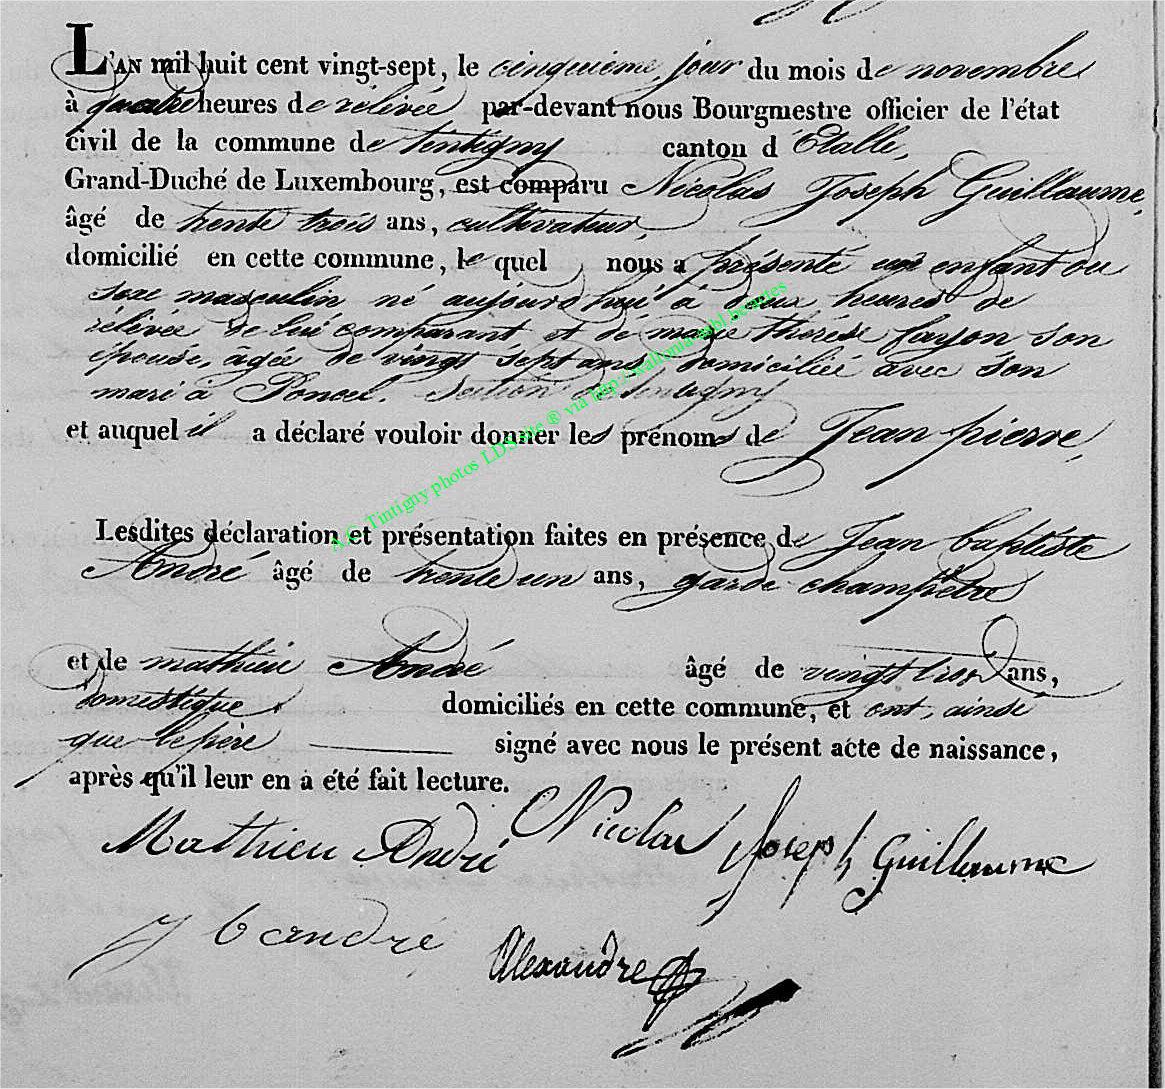 L'AN mil huit cent vingt-sept, le cinquieme jour du mois de novembre
à quatre heures de rélévée par-devant nous Bourgmestre officier de l'état
civil de la commune de tintigny canton d'Etalle,
Grand-Duché de Luxembourg, est comparu Nicolas Joseph Guillaume,
âgé de trente trois ans, cultivateur,
domicilié en cette commune, le quel nous a présenté un enfant du
sexe masculin né aujourd'hui à deux heures de
rélévée de lui comparant, et de marie thérése fayon son
épouse, âgée de vingt sept ans domiciliée avec son
mari à Poncel. Section de tintigny
et auquel il a déclaré vouloir donner les prénoms de Jean pierre,
Lesdites déclaration et présentation faites en présence de Jean baptiste
André âgé de trente un ans, garde champêtre
et de mathieu André âgé de vingt trois ans,
domestique. domiciliés en cette commune, et ont, ainsi
que le père signé avec nous le présent acte de naissance,
après qu'il leur en a été fait lecture.
Mathieu André Nicolas Joseph Guillaume
J b andré Alexandre
A.C. Tintigny photos LDS site ® via http://wallonia-asbl.be/actes